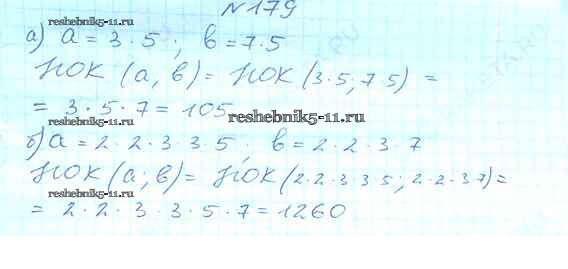 №179
reshebnik5-11.ru
а) a = 3 · 5 ; b = 7 · 5
НОК (a, b) = НОК (3·5, 7·5) =
reshebnik5-11.ru
= 3 · 5 · 7 = 105
reshebnik5-11.ru
б) a = 2 · 2 · 3 · 3 · 5 ; b = 2 · 2 · 3 · 7
НОК (a; b) = НОК (2·2·3·3·5; 2·2·3·7) =
reshebnik5-11.ru
= 2 · 2 · 3 · 3 · 5 · 7 = 1260